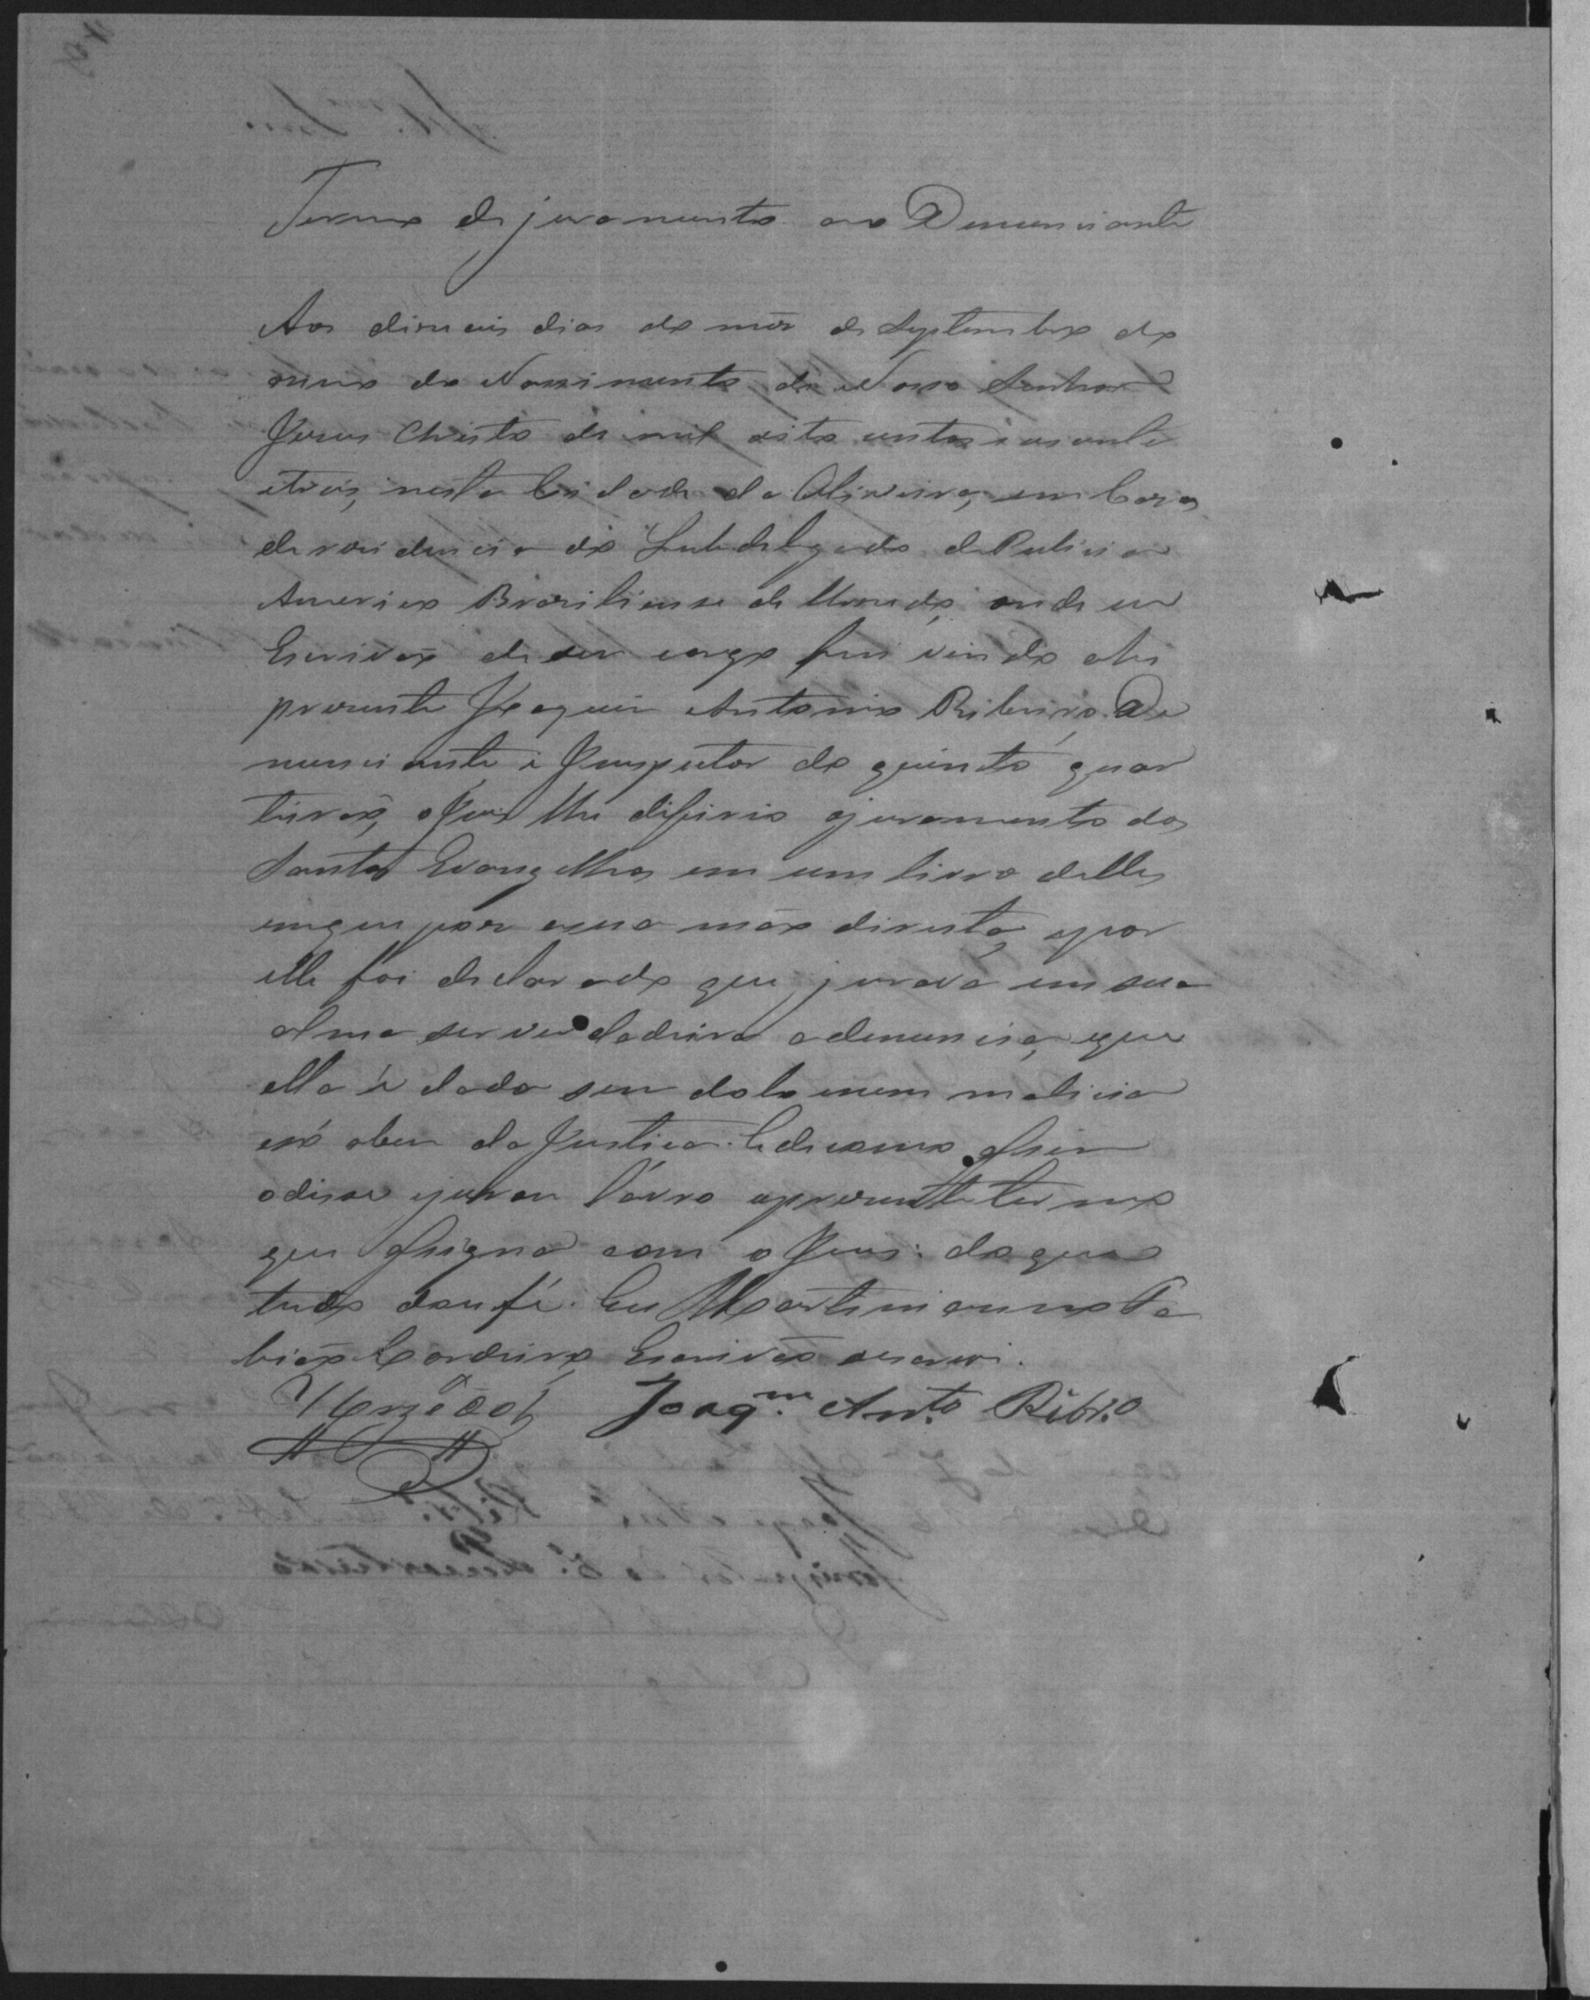 Termo de juramento ao Denunciante
Aos diseseis dias do mês de Septembro do
anno do Nassimento de Nosso Senhor
Jesus Christo de mil oito centos e
e tres, nesta Cidade da Oliveira, em Casa
de residencia do Subdelegado de Policia
Americo Brasiliense de onde eu
Escrivão de seu cargo fui vindo ahi
presente Joaquim Antonio Ribeiro, De
nunciante e Inspector do quinto quar
teirão, o Juis lhe difirio o juramento dos
Santos Evangelhos em um livro delles
em que pos a sua mão direita, e por
elle foi declarado que jurava em sua
alma ser verdadeira a denuncia, e que
ella é dada sem dolo nem malicia
e só a bem da Justica. E de como assim
o disse e jurou lavro o presente termo
que assigna com o Juis: do que
tudo dou fé. Eu Martiniano
Cordeiro, Escrivão escrevi.
Joaqm. Anto. Ribro